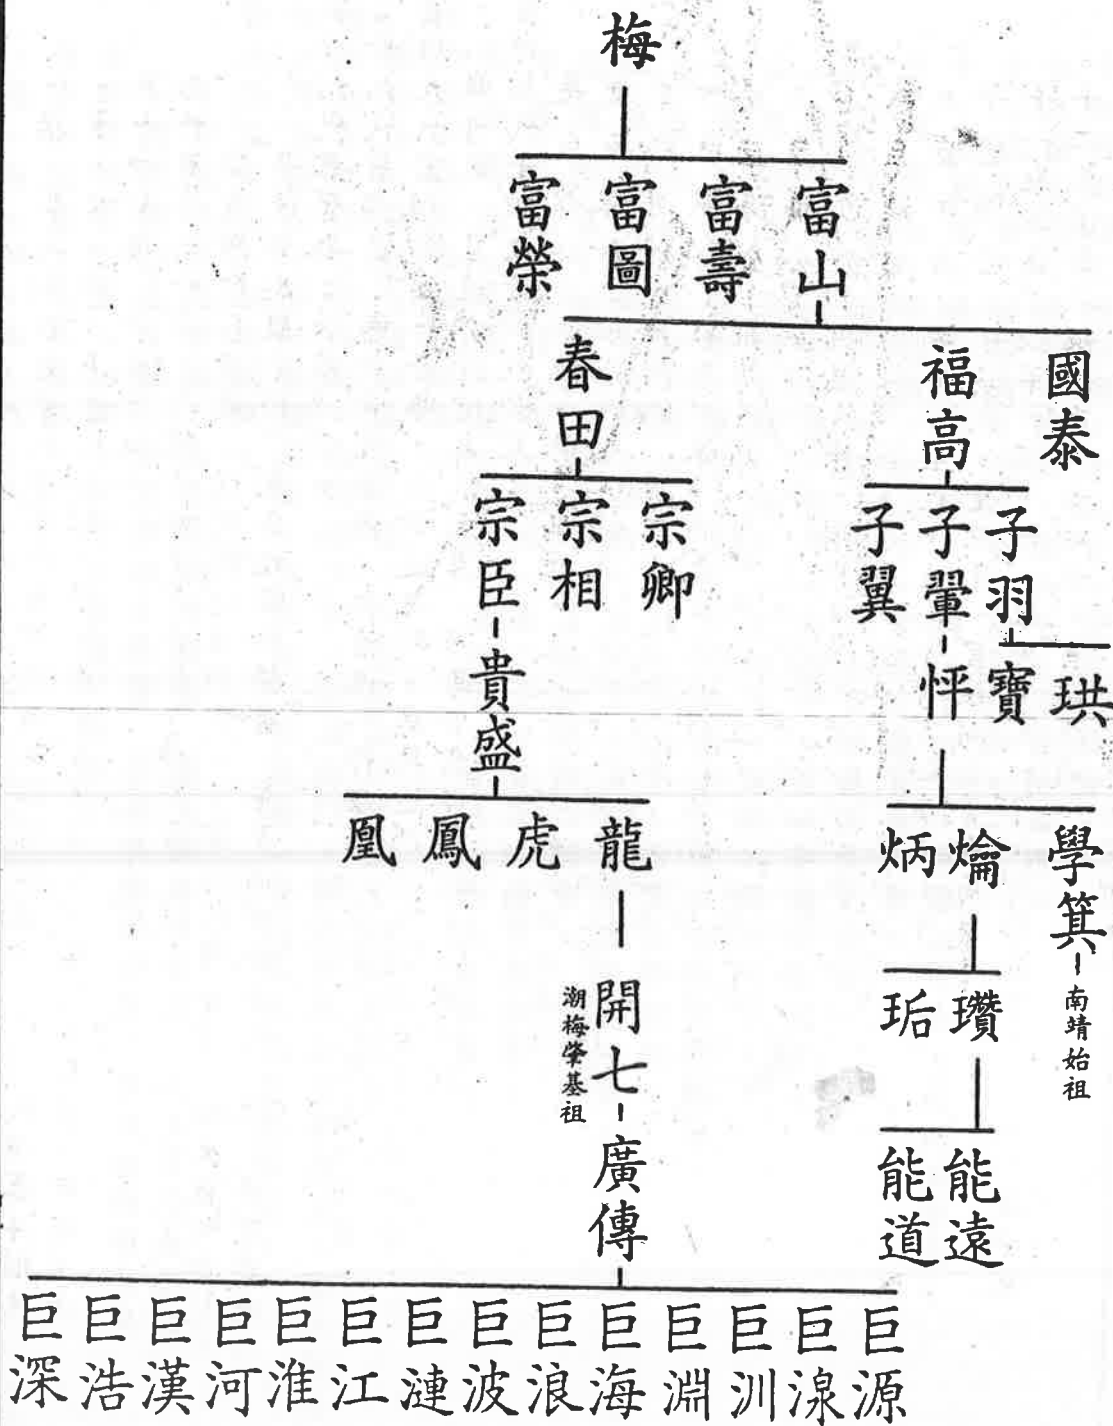 梅
富山
富壽
富圖
富榮
國泰
福高
春田
子羽
子翬
子翼
宗卿
宗相
宗臣
珙
寶
怦
貴盛
學箕
南靖始祖
爚
炳
龍
虎
鳳
凰
瓚
垢
開七
潮梅肇基祖
能遠
能道
廣傳
巨源
巨湶
巨洲
巨淵
巨海
巨浪
巨波
巨漣
巨江
巨淮
巨河
巨漢
巨浩
巨深